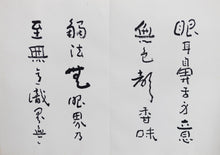 眼耳鼻舌身意
無色聲香味
觸法無眼界乃
至無意識界無